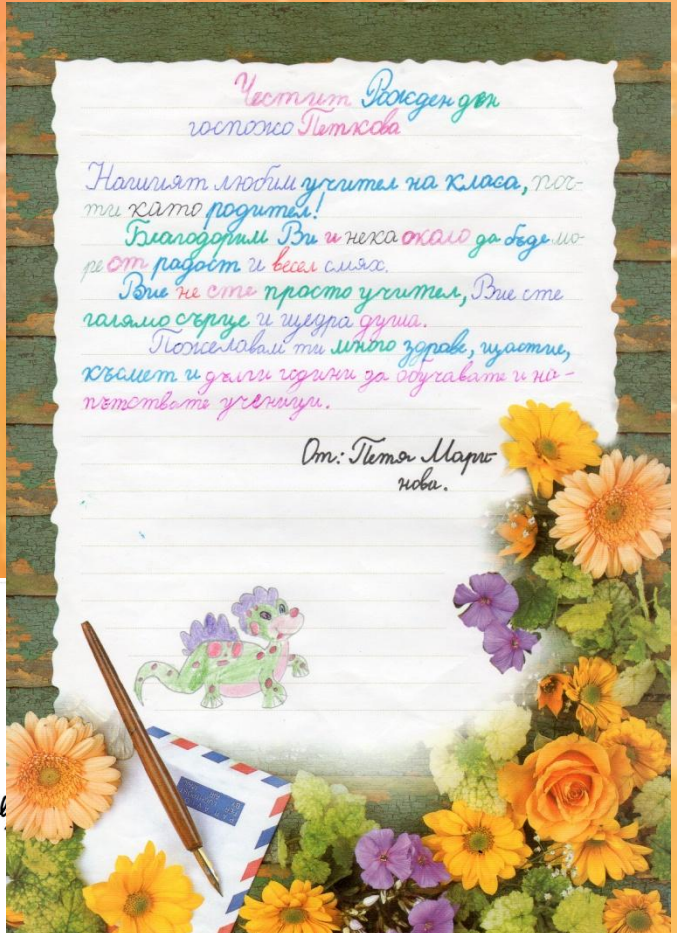 Честит Рожден ден
госпожо Петкова
Нашият любим учител на класа, поч-
ти като родител!
Благодорим Ви и нека около да бъде мо-
ре от радост и весел смях.
Вие не сте просто учител, Вие сте
голямо сърце и щедра душа.
Пожелавам ти много здраве, щастие,
късмет и дълги години да обучавате и на-
пътствате ученици.
От: Петя Мари-
нова.